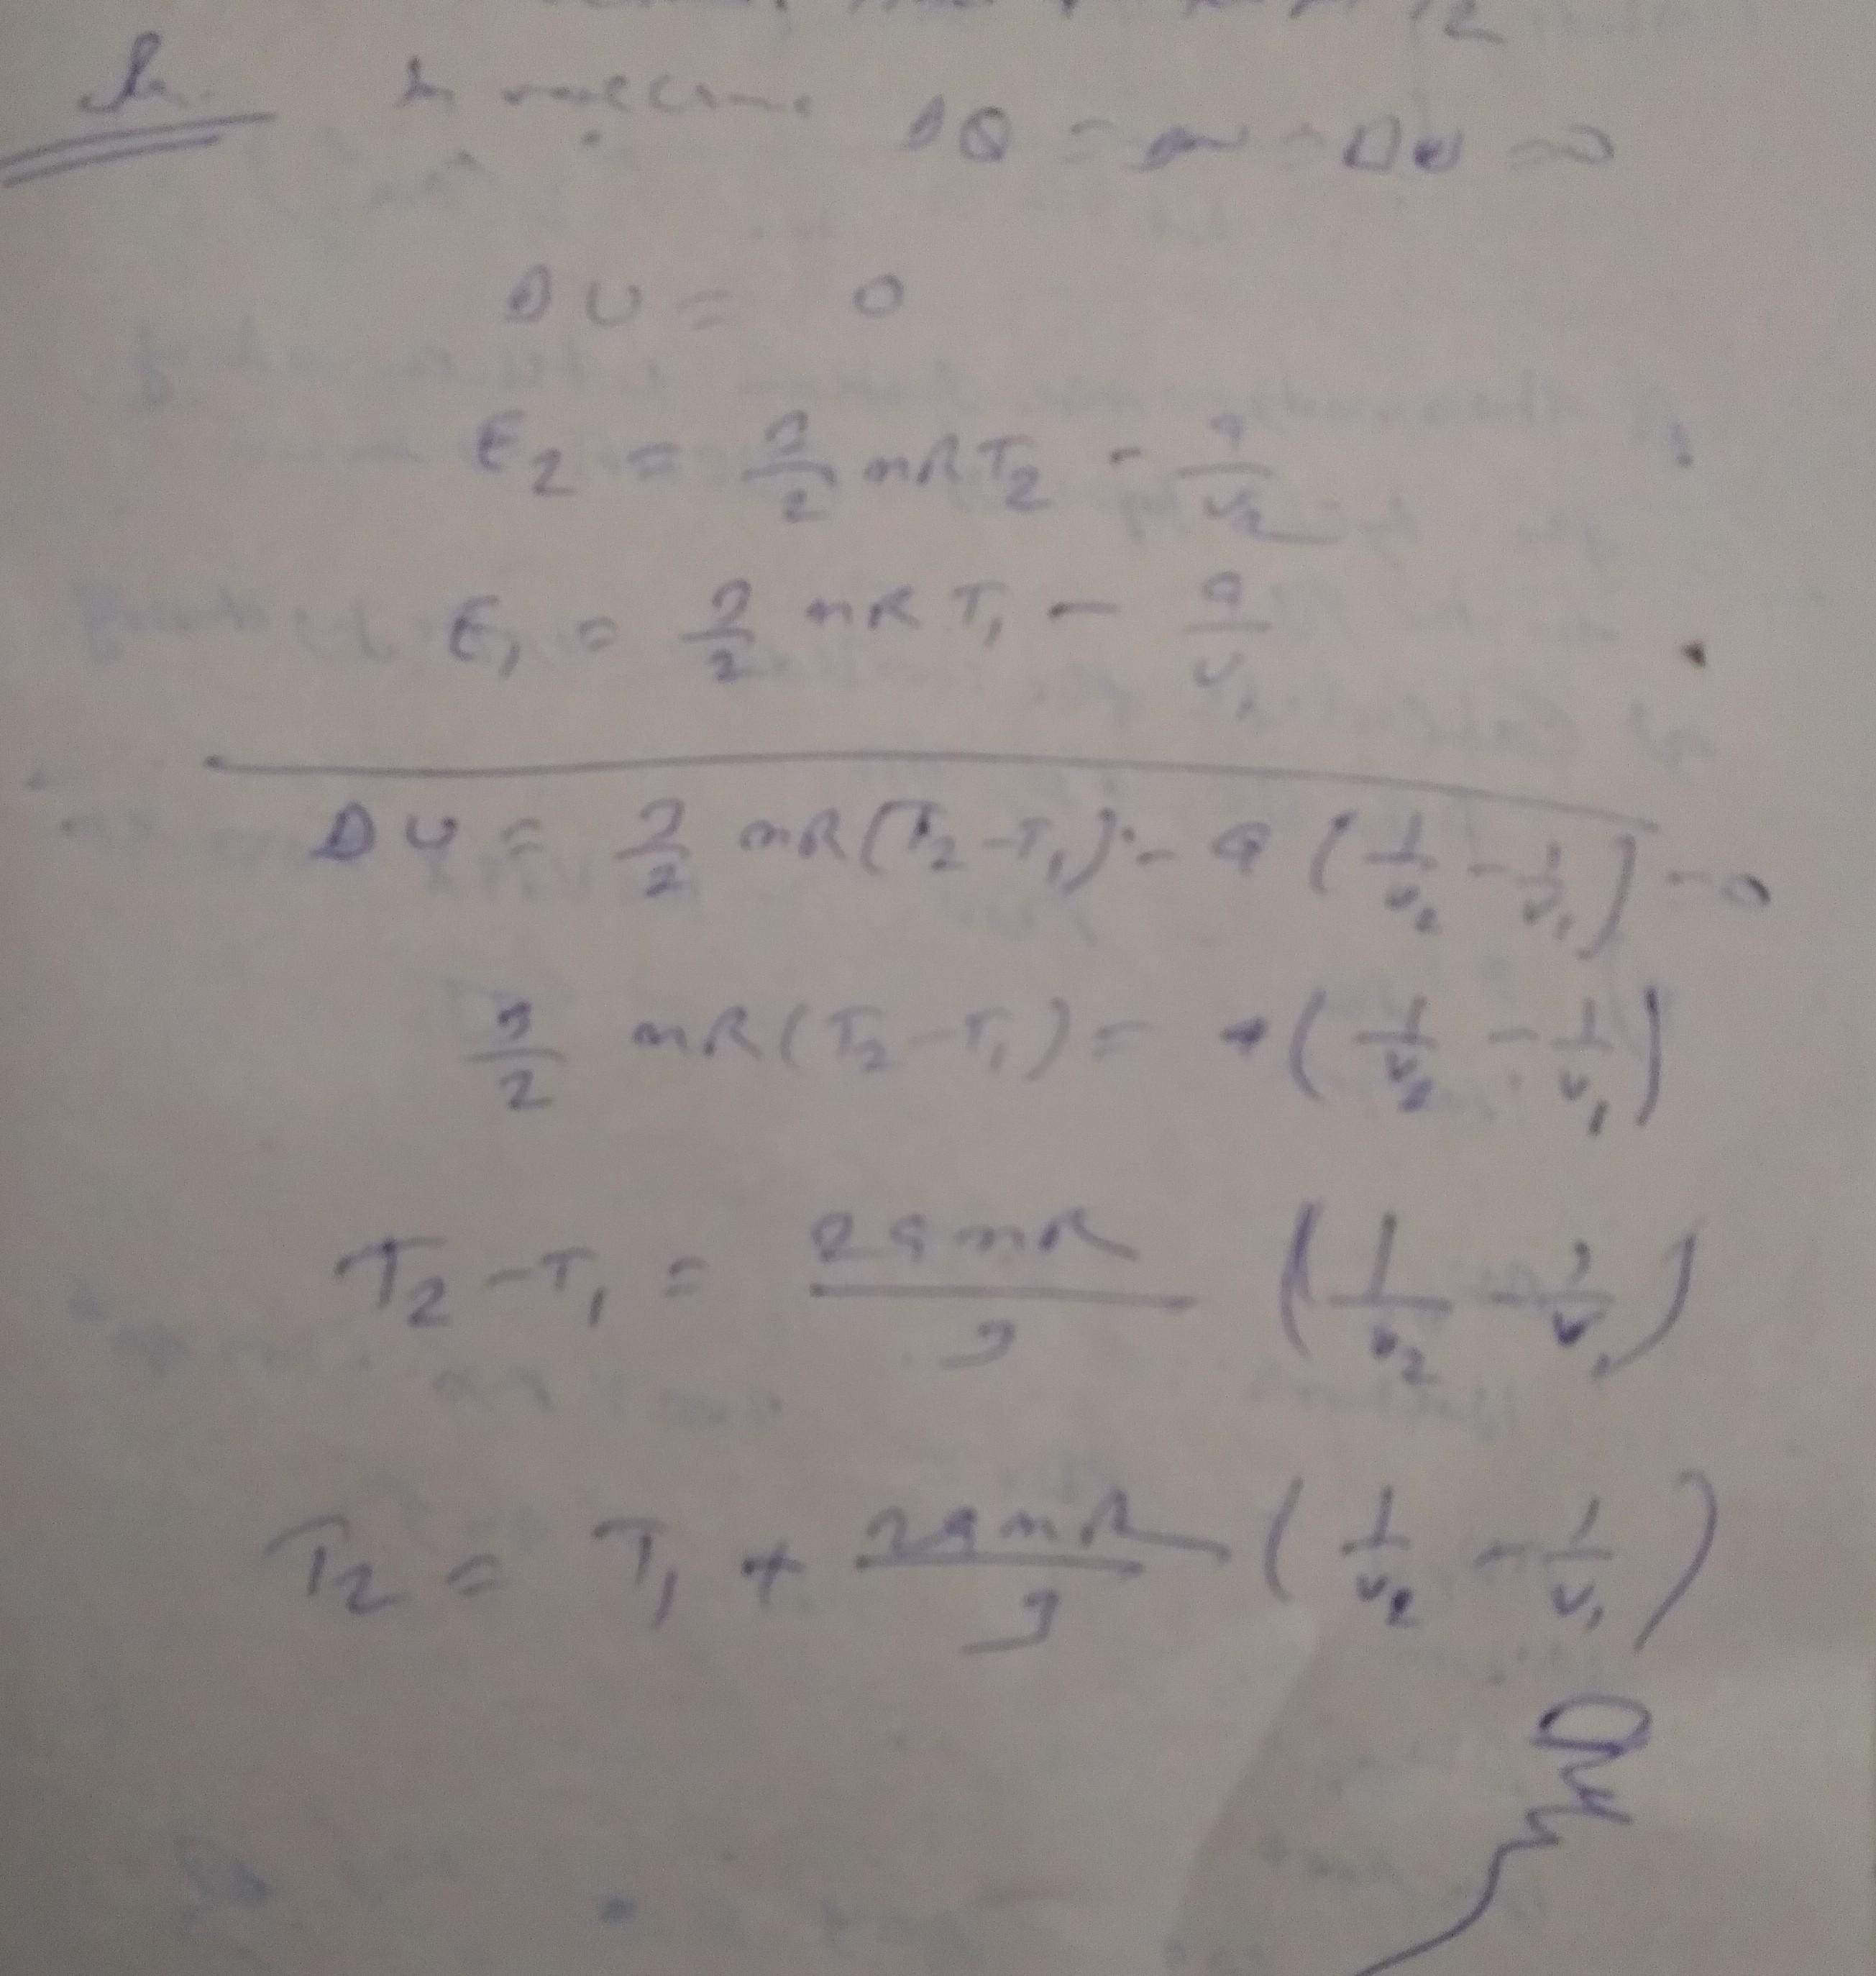 In vacuum ΔQ = ΔW = ΔU = 0
ΔU = 0
E₂ = 3/2 nRT₂ - a/V₂
E₁ = 3/2 nRT₁ - a/V₁
ΔU = 3/2 nR(T₂ - T₁) - a (1/V₂ - 1/V₁) = 0
3/2 nR(T₂ - T₁) = a(1/V₂ - 1/V₁)
T₂ - T₁ = 2anR/3 (1/V₂ - 1/V₁)
T₂ = T₁ + 2anR/3 (1/V₂ - 1/V₁)